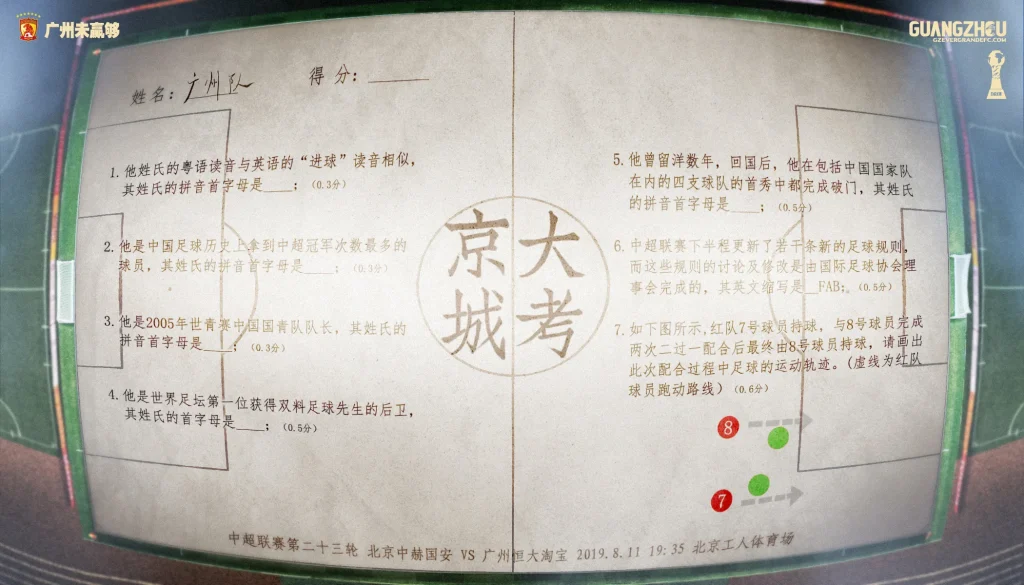 广州未赢够
GUANGZHOU
GZEVERGRANDEFC.COM
姓名：广州队
得分：____
1. 他姓氏的粤语读音与英语的“进球”读音相似，
其姓氏的拼音首字母是____；（0.3分）
2. 他是中国足球历史上拿到中超冠军次数最多的
球员，其姓氏的拼音首字母是____；（0.3分）
3. 他是2005年世青赛中国国青队队长，其姓氏的
拼音首字母是____；（0.3分）
4. 他是世界足坛第一位获得双料足球先生的后卫，
其姓氏的首字母是____；（0.5分）
京 大
城 考
5. 他曾留洋数年，回国后，他在包括中国国家队
在内的四支球队的首秀中都完成破门，其姓氏
的拼音首字母是____；（0.5分）
6. 中超联赛下半程更新了若干条新的足球规则，
而这些规则的讨论及修改是由国际足球协会理
事会完成的，其英文缩写是__FAB；（0.5分）
7. 如下图所示，红队7号球员持球，与8号球员完成
两次二过一配合后最终由8号球员持球，请画出
此次配合过程中足球的运动轨迹。（虚线为红队
球员跑动路线）（0.6分）
8
7
中超联赛第二十三轮 北京中赫国安 VS 广州恒大淘宝 2019.8.11 19:35 北京工人体育场